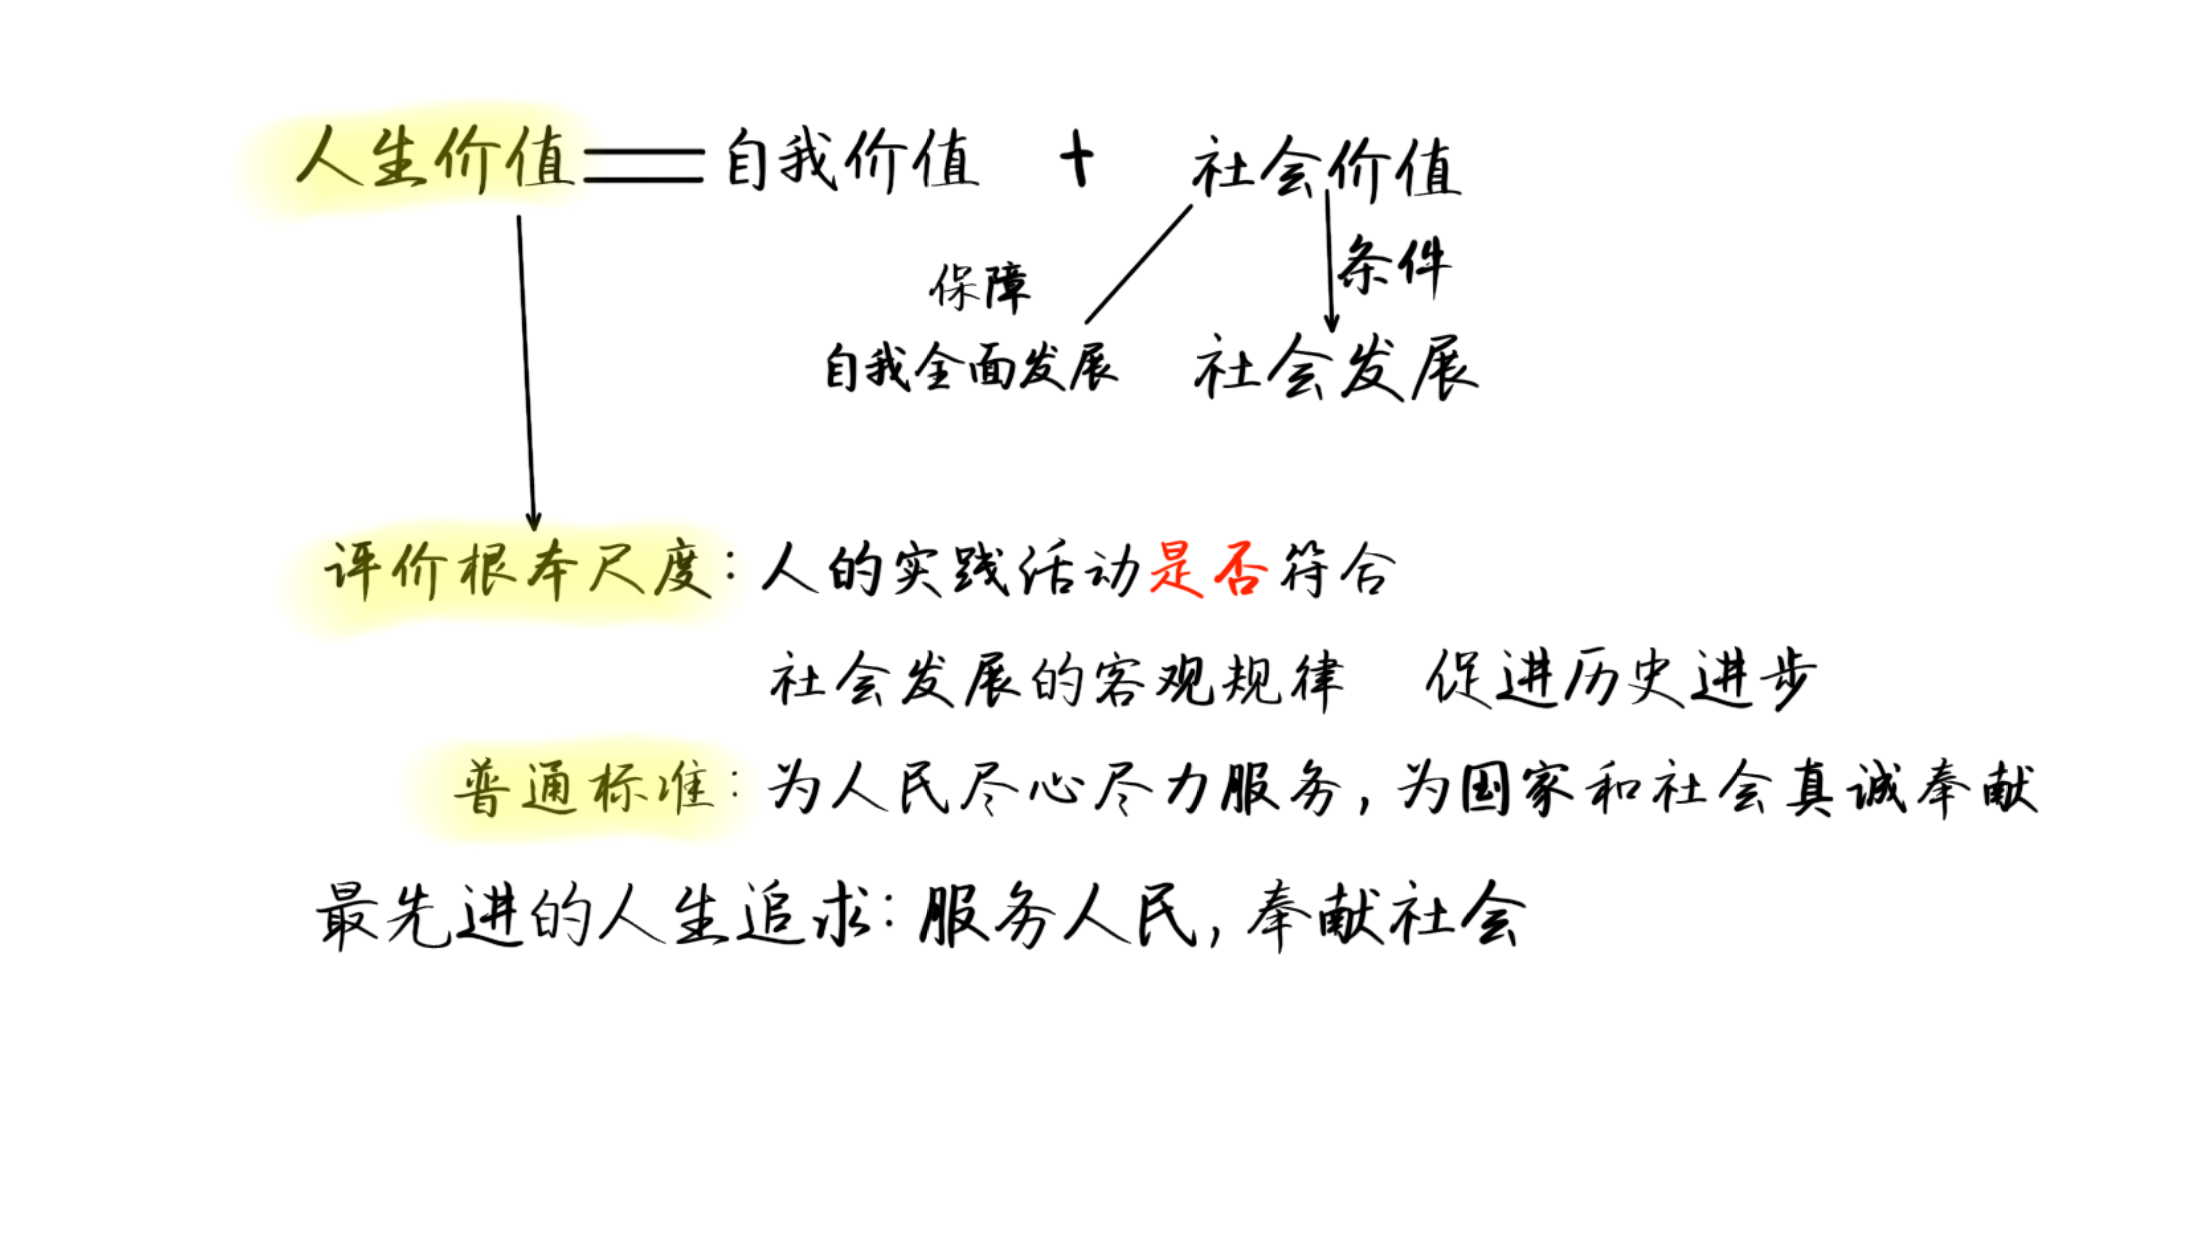 人生价值=自我价值 + 社会价值
条件
保障
自我全面发展 社会发展
评价根本尺度:人的实践活动是否符合
社会发展的客观规律 促进历史进步
普通标准:为人民尽心尽力服务,为国家和社会真诚奉献
最先进的人生追求:服务人民,奉献社会